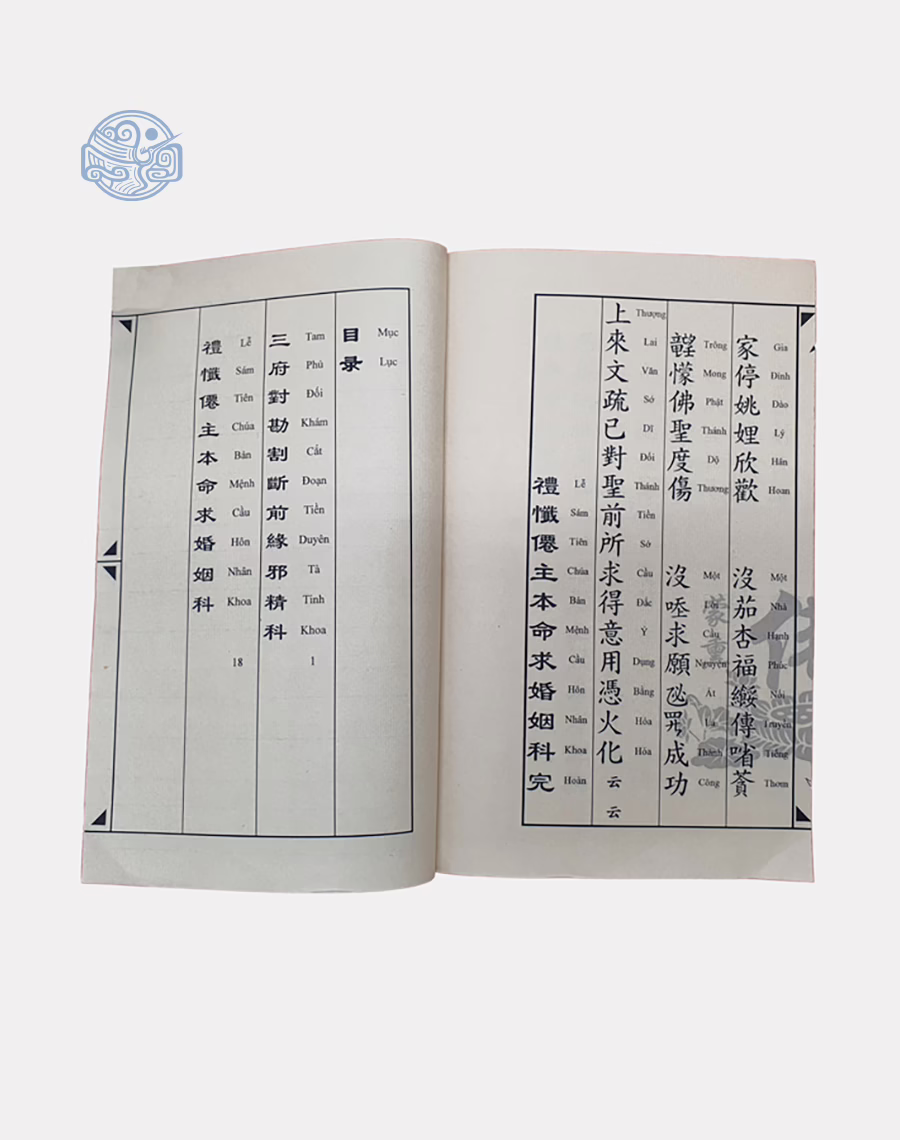 家停姚娌欣歡 沒茄杏福傳㗂
Gia Đình Dào Lý Hân Hoan Một Nhà Hạnh Phúc Nối Truyền Tiếng Thơm
懞佛聖度傷 沒求願𦋦成功
Trông Mong Phật Thánh Độ Thương Một Lời Cầu Nguyện Ắt Thành Công
上來文疏已對聖前所求得意用憑火化云云
Thượng Lai Văn Sớ Dĩ Đối Thánh Tiền Sở Cầu Đắc Ý Dụng Bằng Hỏa Hóa
禮懺僊主本命求婚姻科完
Lễ Sám Tiên Chúa Bản Mệnh Cầu Hôn Nhân Khoa Hoàn
目录
Mục Lục
三府對勘割斷前緣邪精科
Tam Phủ Đối Khám Cắt Đoạn Tiền Duyên Tà Tinh Khoa 1
禮懺僊主本命求婚姻科
Lễ Sám Tiên Chúa Bản Mệnh Cầu Hôn Nhân Khoa 18